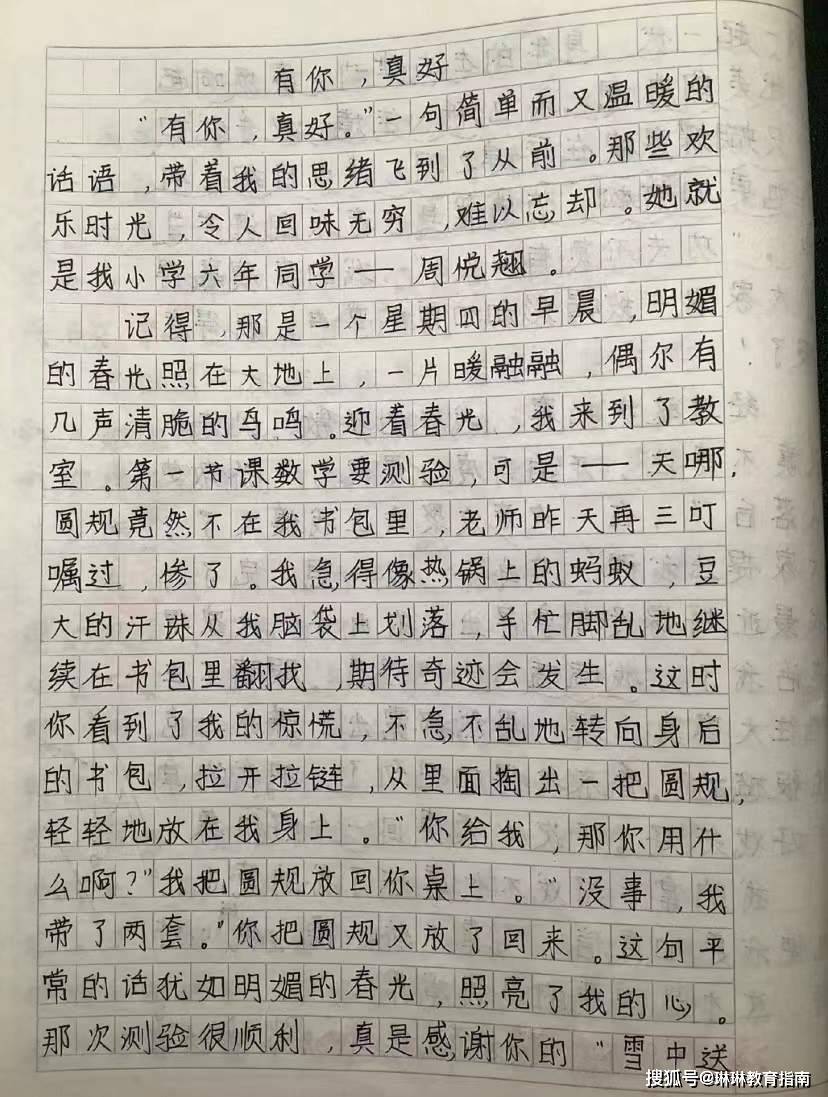 有你，真好
“有你，真好。”一句简单而又温暖的
话语，带着我的思绪飞到了从前。那些欢
乐时光，令人回味无穷，难以忘却。她就
是我小学六年同学——周悦翘。
记得，那是一个星期四的早晨，明媚
的春光照在大地上，一片暖融融，偶尔有
几声清脆的鸟鸣。迎着春光，我来到了教
室。第一节课数学要测验，可是——天哪，
圆规竟然不在我书包里，老师昨天再三叮
嘱过，惨了。我急得像热锅上的蚂蚁，豆
大的汗珠从我脑袋上划落，手忙脚乱地继
续在书包里翻找，期待奇迹会发生。这时
你看到了我的惊慌，不急不乱地转向身后
的书包，拉开拉链，从里面掏出一把圆规，
轻轻地放在我身上。“你给我，那你用什
么啊？”我把圆规放回你桌上。“没事，我
带了两套。”你把圆规又放了回来。这句平
常的话犹如明媚的春光，照亮了我的心。
那次测验很顺利，真是感谢你的“雪中送
搜狐号@琳琳教育指南